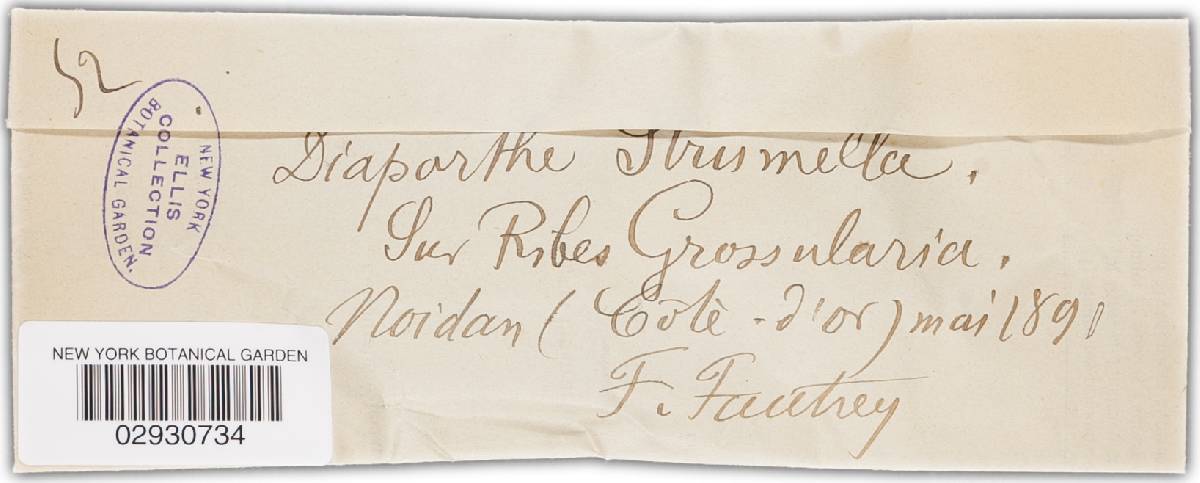 52
NEW YORK
ELLIS
COLLECTION
BOTANICAL GARDEN.
Diaporthe Strumella.
Sur Ribes Grossularia.
Noidan (Côte-d'or) mai 1891
F. Fautrey
NEW YORK BOTANICAL GARDEN
02930734